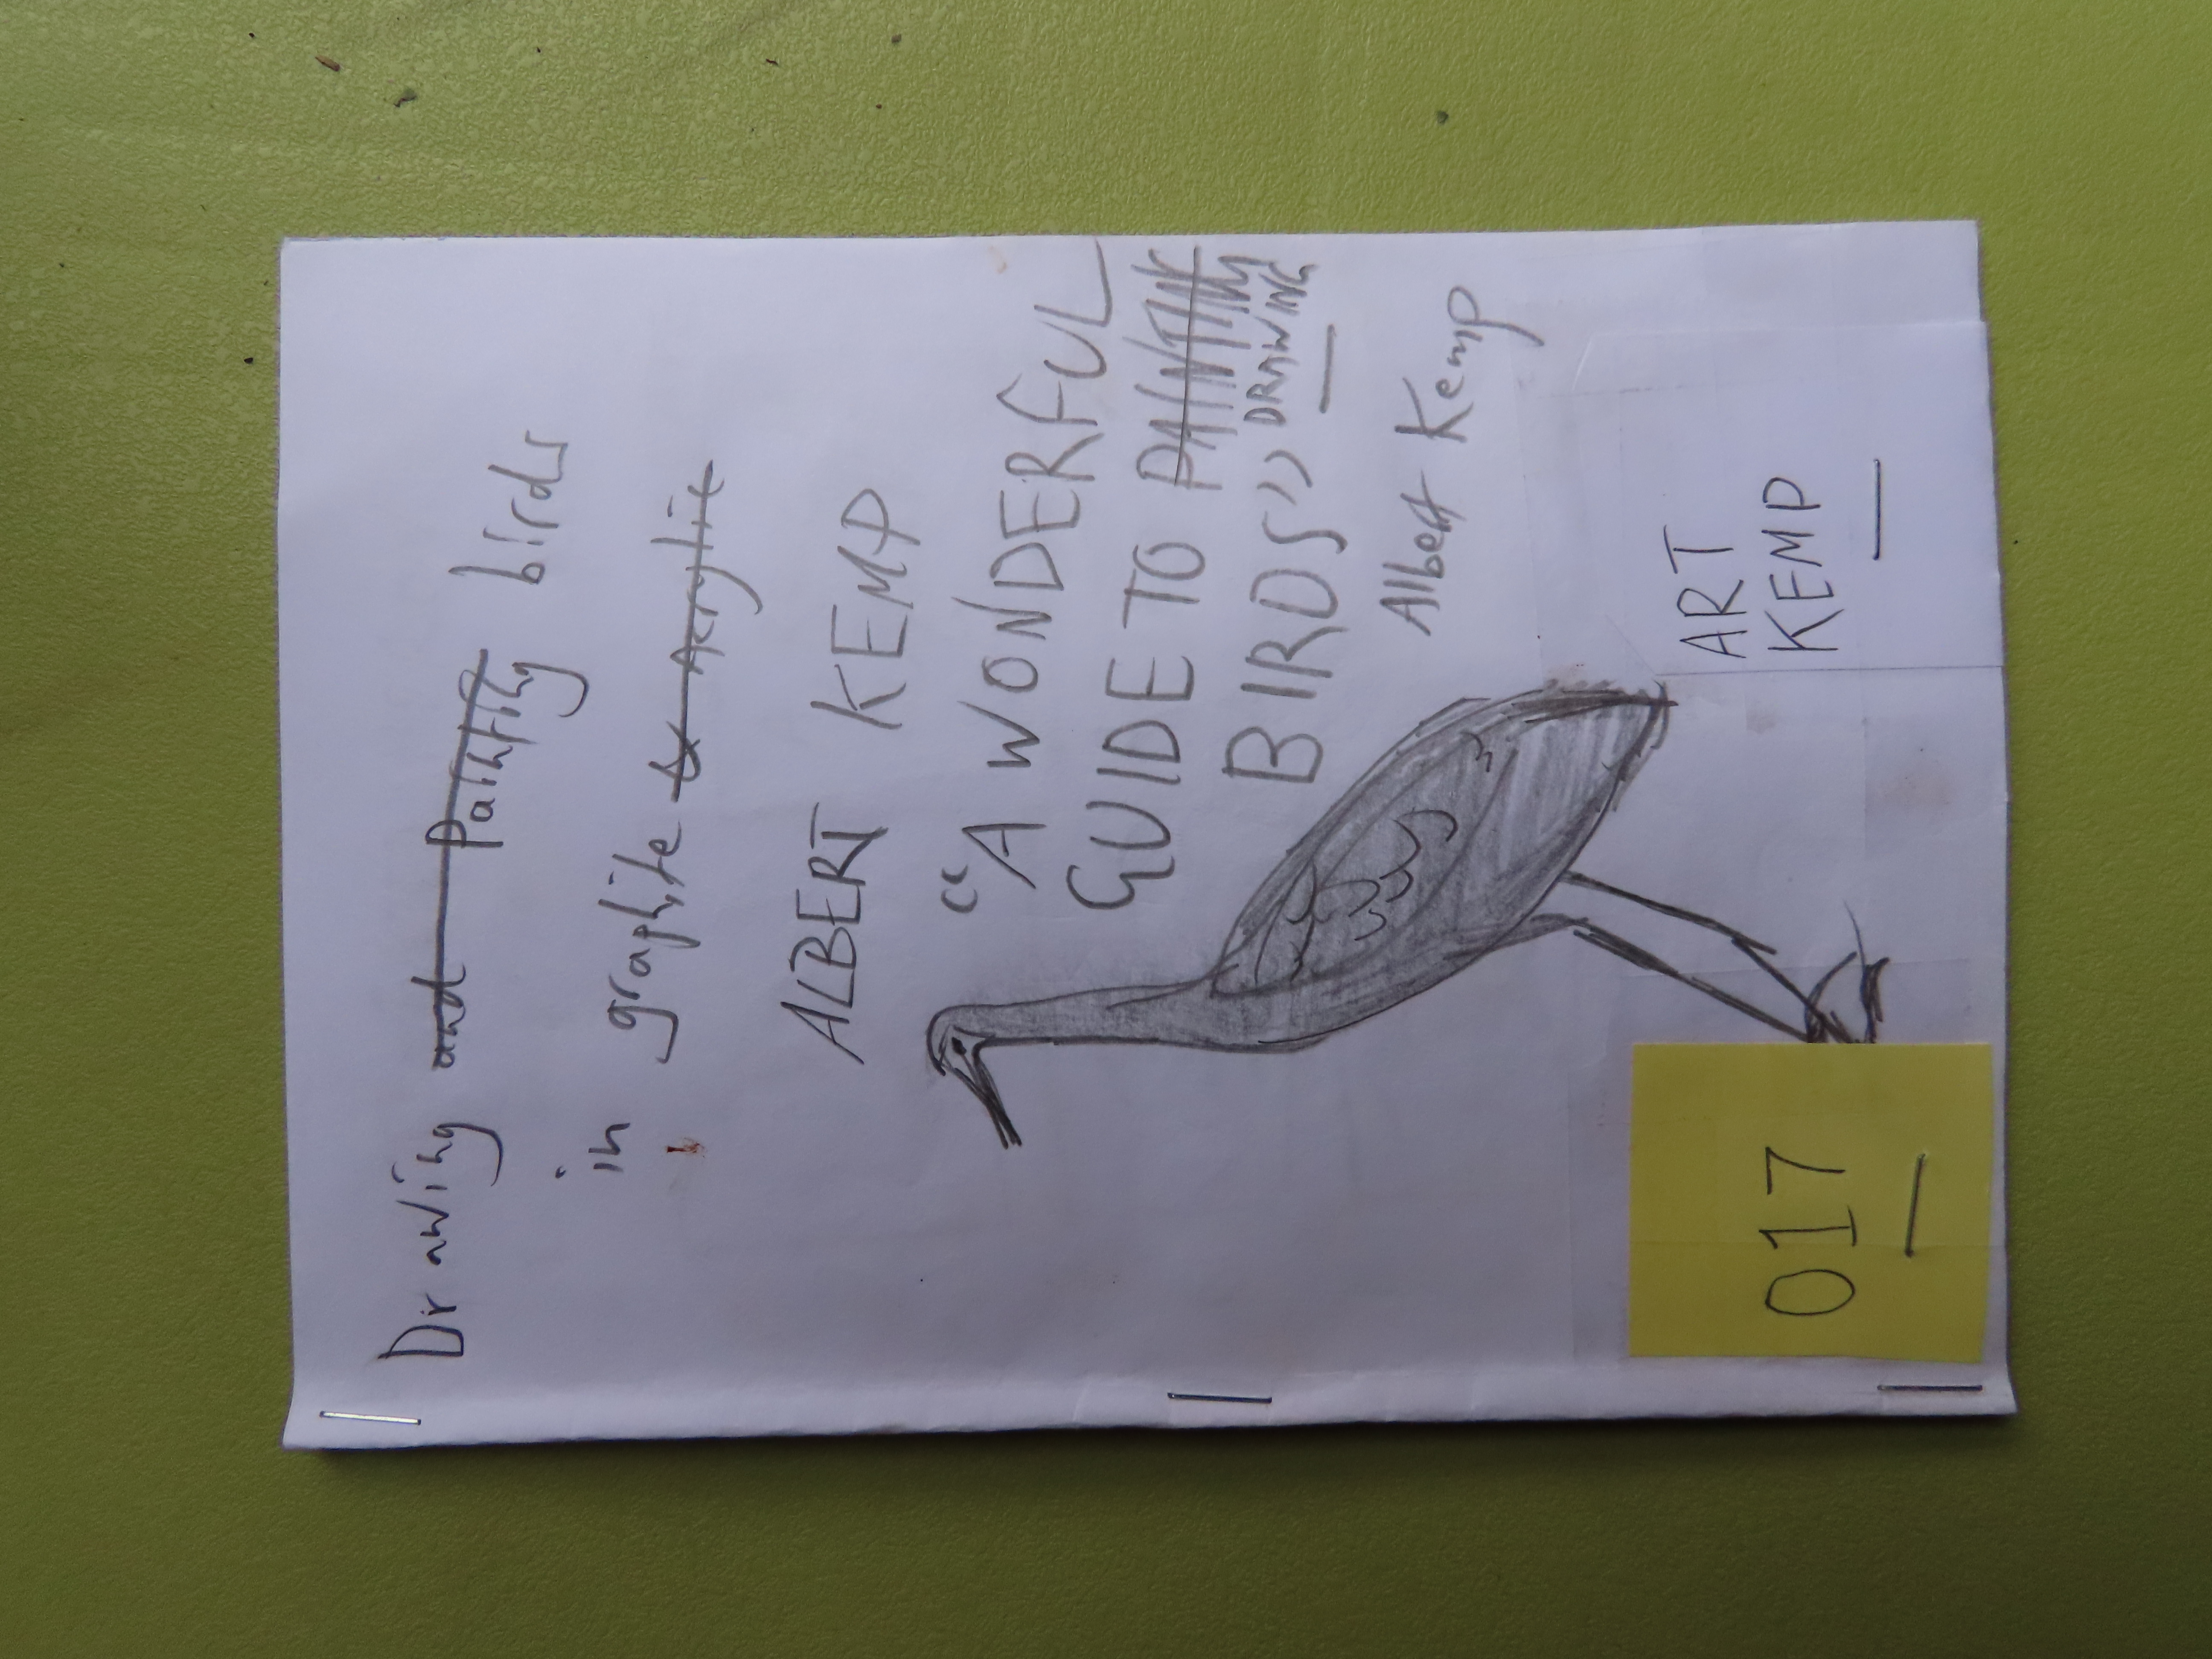 Drawing and Painting birds
in graphite & Acrylic
ALBERT KEMP
"A WONDERFUL
GUIDE TO PAINTING
DRAWING
BIRDS"
Albert Kemp
ART
KEMP
017